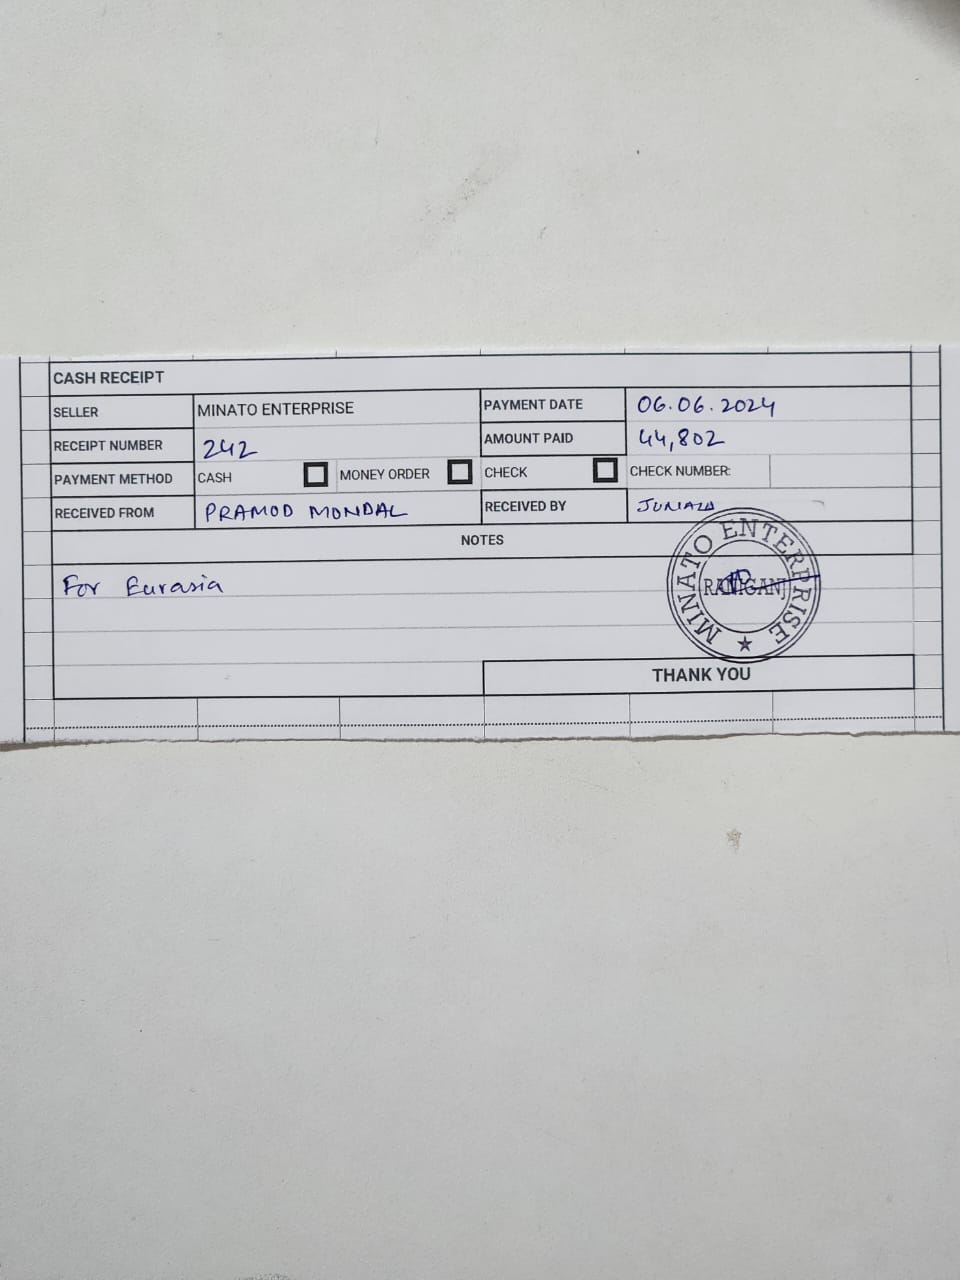 CASH RECEIPT
SELLER MINATO ENTERPRISE PAYMENT DATE 06.06.2024
RECEIPT NUMBER 242 AMOUNT PAID 44,802
PAYMENT METHOD CASH MONEY ORDER CHECK CHECK NUMBER:
RECEIVED FROM PRAMOD MONDAL RECEIVED BY
NOTES
For Eurasia
MINATO ENTERPRISE
RANIGANJ
THANK YOU